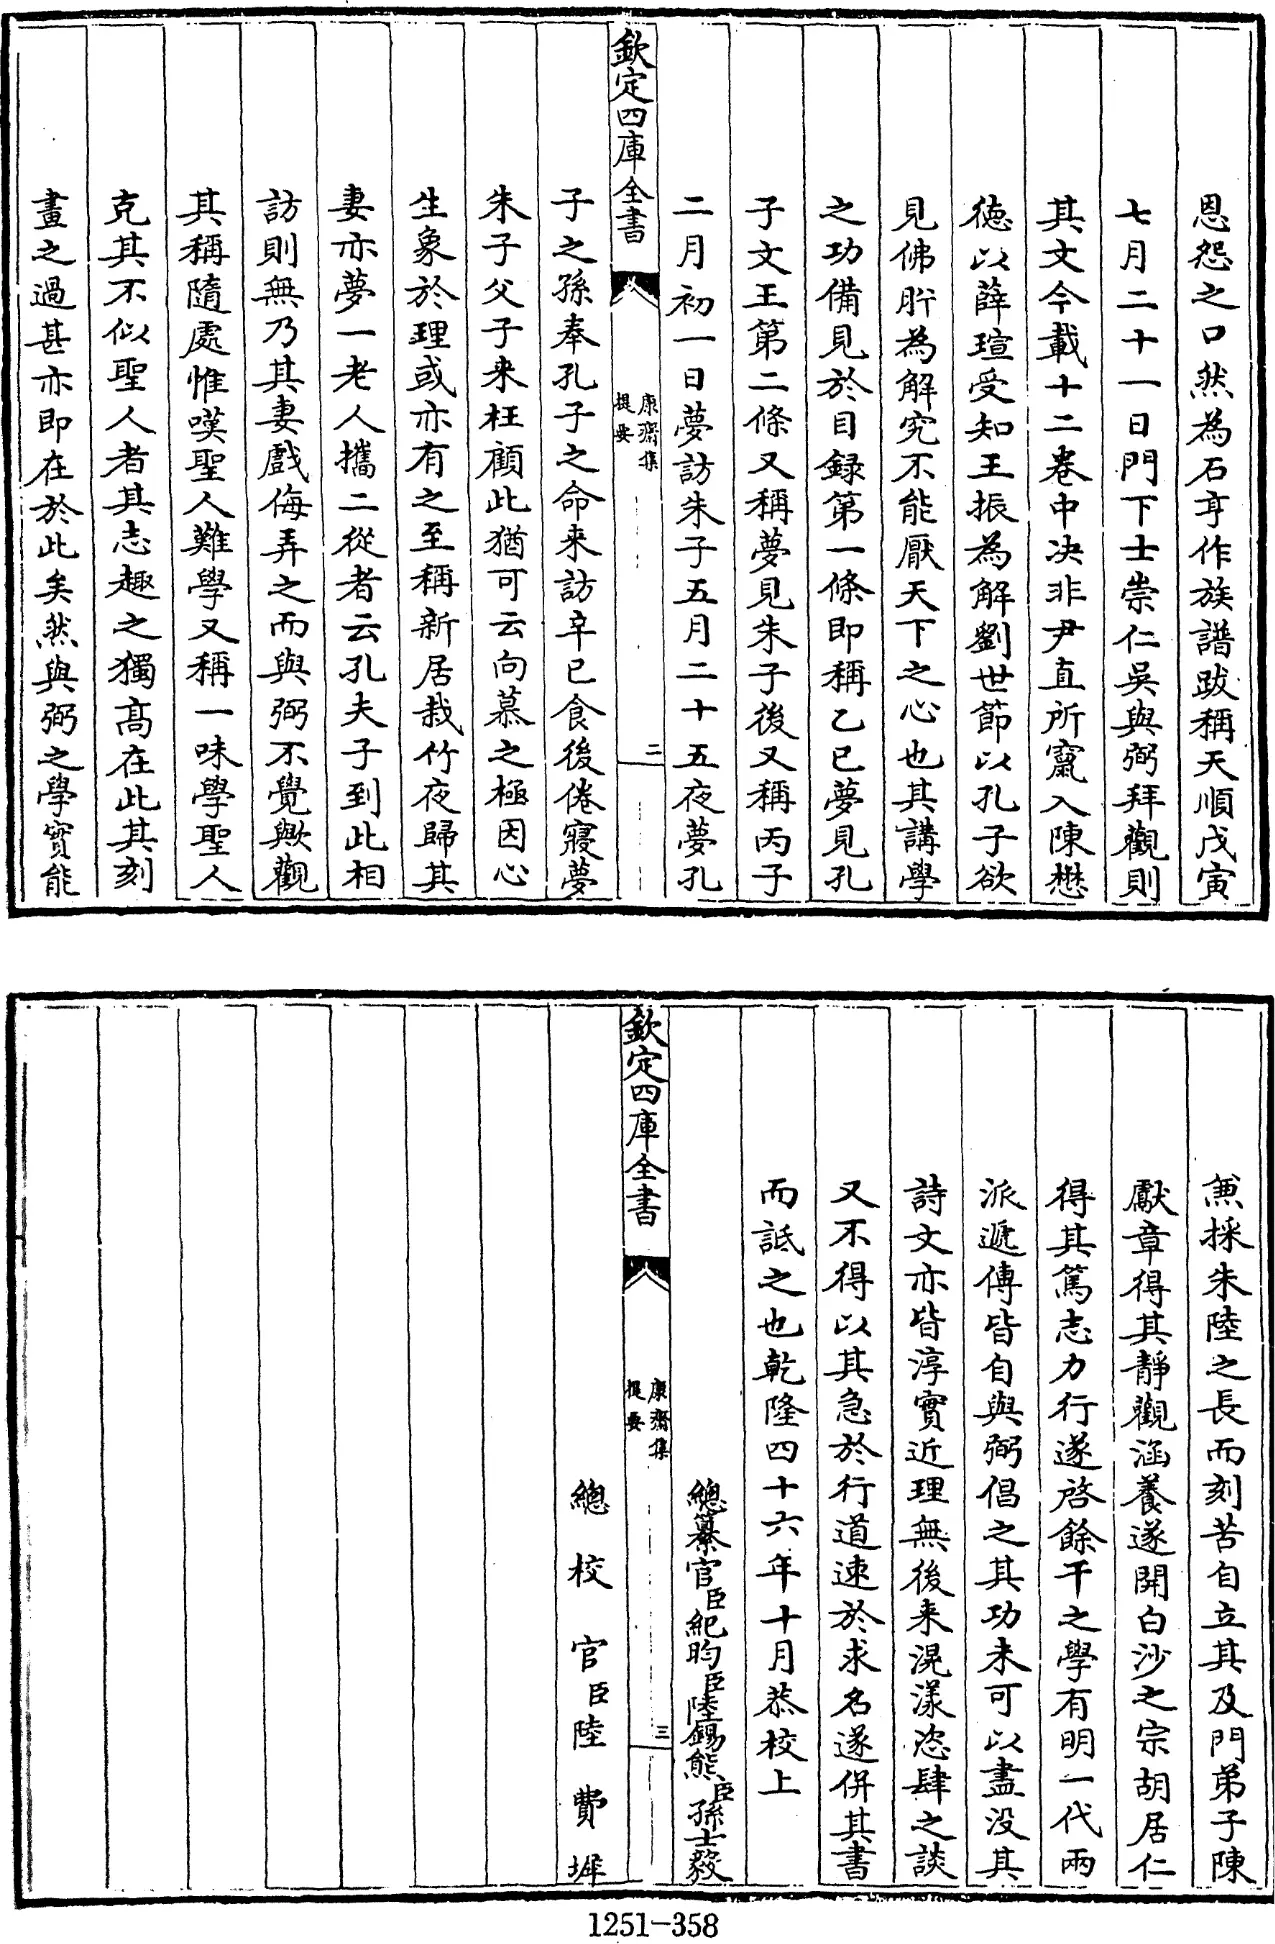 恩怨之口然為石亨作族譜跋稱天順戊寅
七月二十一日門下士崇仁吳與弼拜觀則
其文今載十二卷中决非尹直所竄入陳懋
徳以薛瑄受知王振為解劉世節以孔子欲
見佛肸為解究不能厭天下之心也其講學
之功備見於目録第一條即稱乙巳夢見孔
子文王第二條又稱夢見朱子後又稱丙子
二月初一日夢訪朱子五月二十五夜夢孔
欽定四庫全書
康齋集
提要
二
子之孫奉孔子之命来訪辛已食後倦寢夢
朱子父子来枉顧此猶可云向慕之極因心
生象於理或亦有之至稱新居栽竹夜歸其
妻亦夢一老人攜二從者云孔夫子到此相
訪則無乃其妻戲侮弄之而與弼不覺歟觀
其稱隨處惟嘆聖人難學又稱一味學聖人
克其不似聖人者其志趣之獨髙在此其刻
畫之過甚亦即在於此矣然與弼之學實能
兼採朱陸之長而刻苦自立其及門弟子陳
獻章得其靜觀涵養遂開白沙之宗胡居仁
得其篤志力行遂啓餘干之學有明一代兩
派遞傳皆自與弼倡之其功未可以盡没其
詩文亦皆淳實近理無後来滉漾恣肆之談
又不得以其急於行道速於求名遂併其書
而詆之也乾隆四十六年十月恭校上
總纂官臣紀昀臣陸錫熊臣孫士毅
欽定四庫全書
康齋集
提要
三
總校官臣陸費墀
1251-358